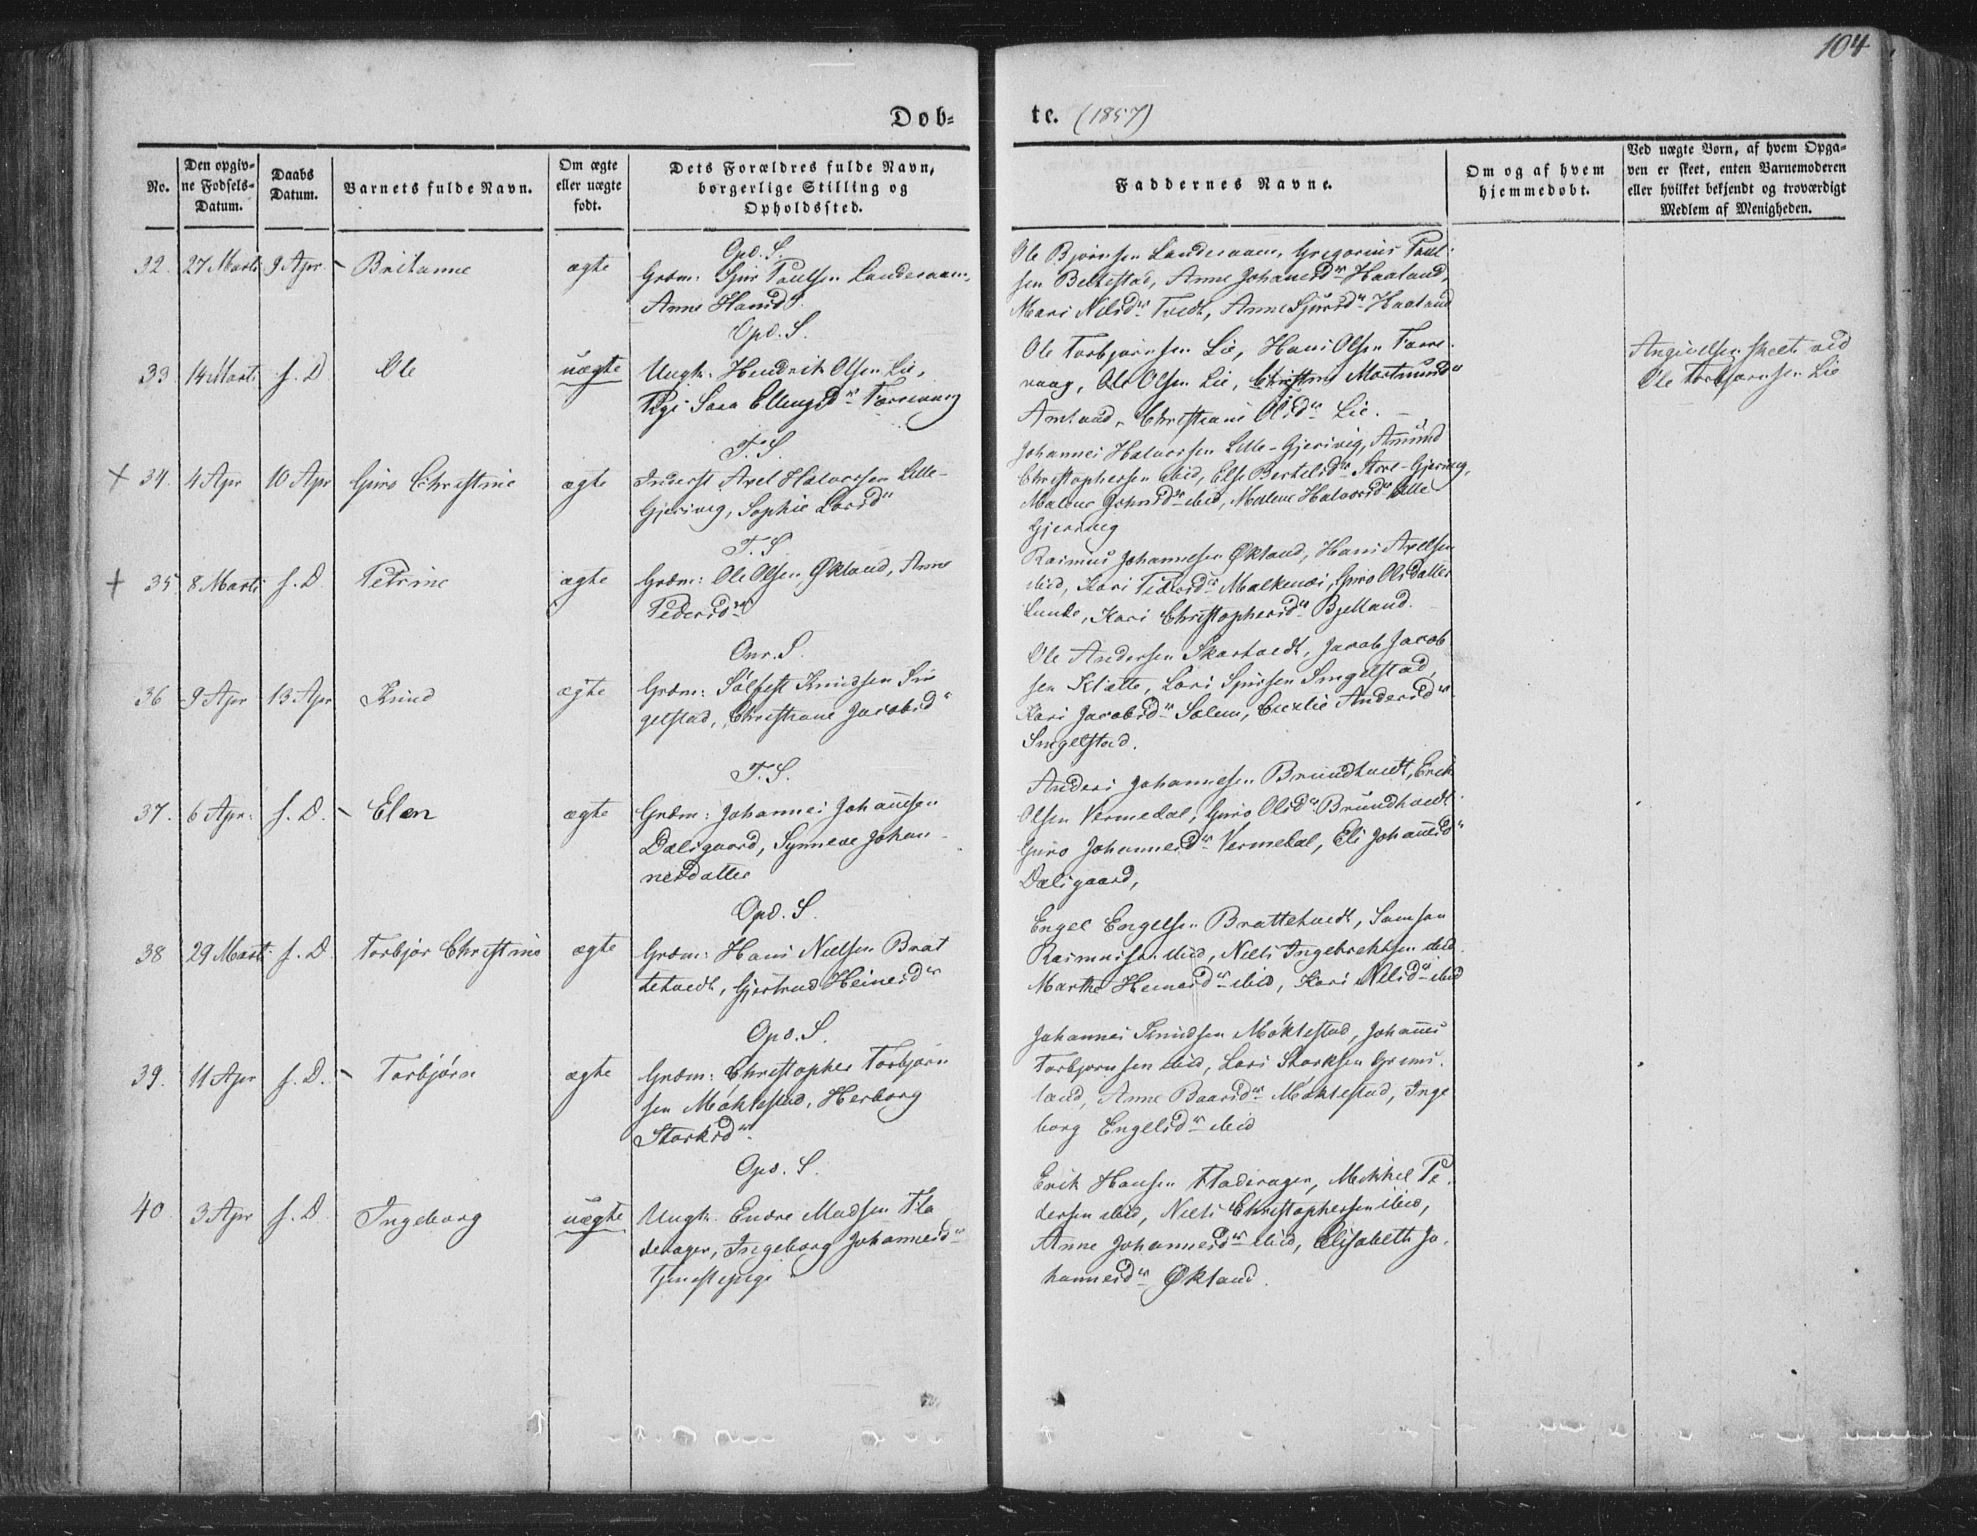 104
Døb=
te. (1857)
No.
Den opgiv=
ne Fødsels=
Datum.
Daabs
Datum.
Barnets fulde Navn.
Om ægte
eller uægte
født.
Dets Forældres fulde Navn,
borgerlige Stilling og
Opholdssted.
Faddernes Navne.
Om og af hvem
hjemmedøbt.
Ved uægte Børn, af hvem Opga=
ven er skeet, enten Barnemoderen
eller hvilket bekjendt og troværdigt
Medlem af Menigheden.
Opd. S.
32. 27 Marti 9 Apr Britanne ægte Grdm: Sjur Poulsen Landesaasen,
Anne Hansd.
Ole Bjørnsen Landesaasen, Gregorius Poul-
sen Bekkestad, Anne Johannesdr Haaland,
Mari Nilsdr Tvedt, Anne Sjursdr Haaland
Opd. S.
33 14 Marti s. D Ole uægte Ungk. Hendrik Olsen Lie,
Pige Sara Ellingsdr Færevaag
Ole Torbjørnsen Lie, Hans Olsen Fære-
vaag, Ole Olsen Lie, Christine Mortmundsdr
Amland, Christiane Olsdr Lie.
Angivelsen skeet ved
Ole Torbjørnsen Lie
T. S.
+ 34. 4 Apr 10 Apr Guro Christine ægte Inderst Axel Halvorsen Lille-
Gjersvig, Sophie Larsdr
Johannes Halvorsen Lille-Gjersvig, Amund
Christophersen ibid, Else Bertelsdr Store-Gjersvig,
Malene Johnsdr ibid, Malene Halvorsdr Lille
Gjersvig
T. S
+ 35 8 Marti s. D. Petrine ægte Grdm: Ole Olsen Økland, Anne
Pedersdr
Rasmus Johannesen Økland, Hans Axelsen
ibid, Kari Pedersdr Malkenæs, Guro Olsdatter
Lunde, Kari Christophersdr Bjelland.
Onr. S.
36 9 Apr 13 Apr Knud ægte Grdm: Sølfest Knudsen Sin
gelstad, Christiane Jacobsdr
Ole Andersen Skartvedt, Jacob Jacob
sen Klatte, Lars Sjursen Singelstad,
Kari Jacobsdr Solem, Cicelie Andersdr
Singelstad.
T. S.
37. 6 Apr: s. D. Elen ægte Grdm: Johannes Johannesen
Dalsgaard, Synneve Johan-
nesdatter
Anders Johannesen Brundtvedt, Erik
Olsen Vermedal, Guro Olsdr Brundtvedt
Guro Johannesdr Vermedal, Eli Johannesdr
Dalsgaard,
Opd. S.
38 29 Marti s. D Torbjør Christine ægte Grdm: Hans Nielsen Brat
tetvedt, Gjertrud Heinesdr
Engel Engelsen Brattetvedt, Samson
Rasmussen ibid, Niels Ingebrektsen ibid
Marthe Heinesdr ibid, Kari Nilsdr ibid
Opd. S.
39. 11 Apr s. D. Torbjørn ægte Grdm: Christopher Torbjørn
sen Møklestad, Herborg
Storksdr
Johannes Knudsen Møklestad, Johannes
Torbjørnsen ibid, Lars Storksen Grims-
land, Anne Baarsdr Møklestad, Inge
borg Engelsdr ibid
Opd. S.
40 3 Apr s. D Ingeborg uægte Ungk. Endre Madsen Fla
derager, Ingeborg Johannesdr
Tjenestepige
Erik Hansen Fladerager, Mikkel Pe-
dersen ibid, Niels Christophersen ibid,
Anne Johannesdr ibid, Elisabeth Jo-
hannesdr Økland.